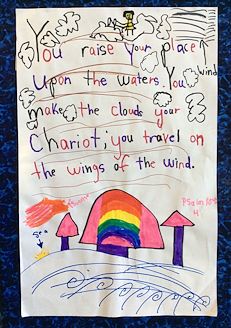 You raise your place
Upon the waters. You
wind
make the clouds your
Chariot; you travel on
the wings of the wind.
Psalm 104
sea